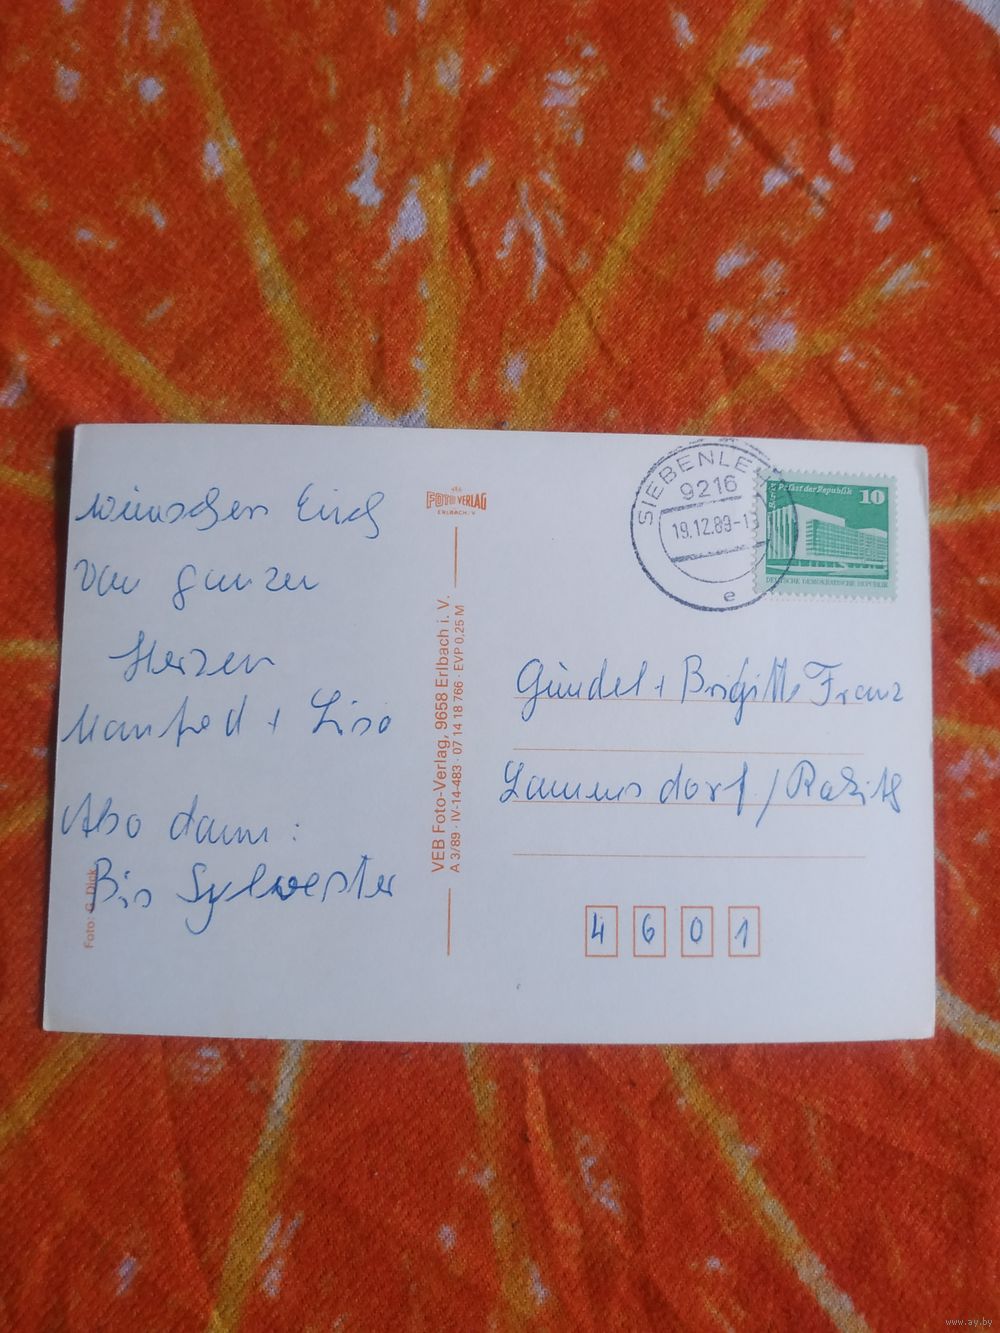 wünschen Euch
von ganzen
Herzen
Manfred + Lisa
Also dann:
Bis Sylwester
Foto: G. Dick
FOTO VERLAG
ERLBACH. V.
VEB Foto-Verlag, 9658 Erlbach i. V.
A 3/89 · IV-14-483 · 07 14 18 766 · EVP 0,25 M
SIEBENLEHN
9216
19.12.89-1
e
Palast der Republik
10
DEUTSCHE DEMOKRATISCHE REPUBLIK
Gündel + Brigitte Franz
4 6 0 1
www.ay.by